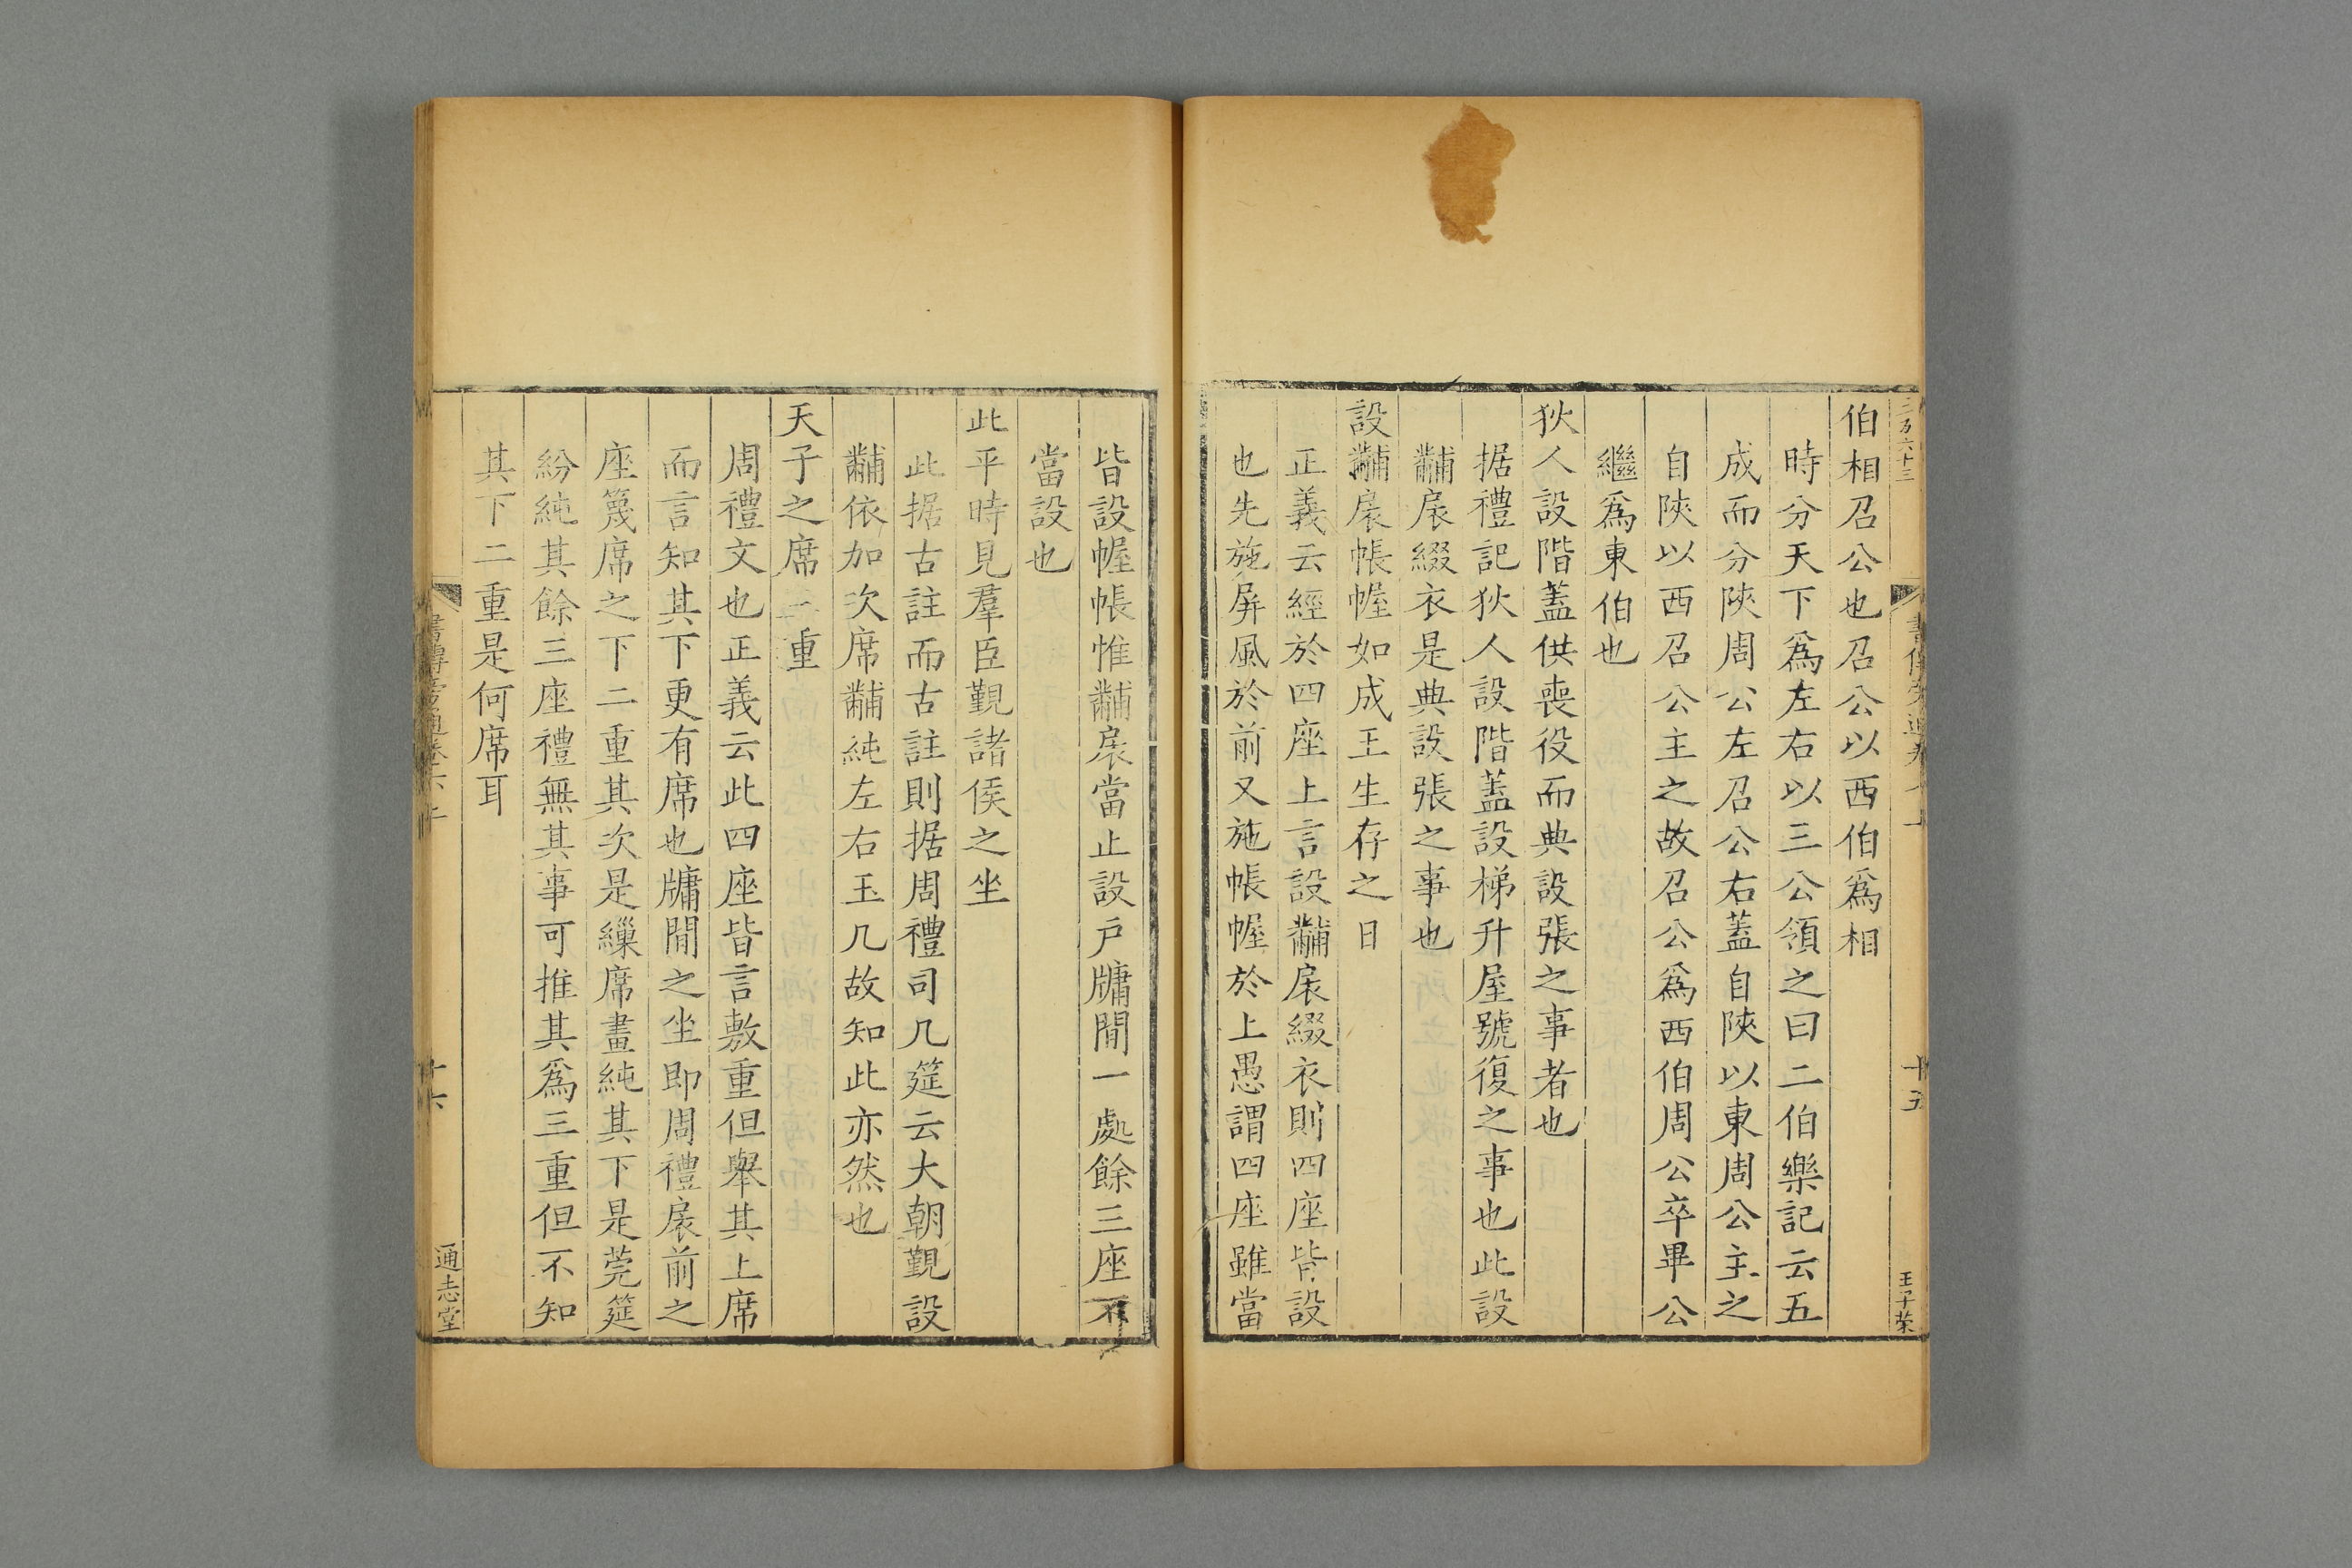 伯相召公也召公以西伯爲相
時分天下爲左右以三公領之曰二伯樂記云五
成而分陜周公左召公右蓋自陜以東周公主之
自陜以西召公主之故召公爲西伯周公卒畢公
繼爲東伯也
狄人設階蓋供喪役而典設張之事者也
据禮記狄人設階蓋設梯升屋號復之事也此設
黼扆綴衣是典設張之事也
設黼扆帳幄如成王生存之日
正義云經於四座上言設黼扆綴衣則四座皆設
也先施屏風於前又施帳幄於上愚謂四座雖當
十五
王子榮
皆設幄帳惟黼扆當止設戶牗閒一處餘三座不
當設也
此平時見羣臣覲諸侯之坐
此据古註而古註則据周禮司几筵云大朝覲設
黼依加次席黼純左右玉几故知此亦然也
天子之席三重
周禮文也正義云此四座皆言敷重但舉其上席
而言知其下更有席也牗閒之坐即周禮扆前之
座篾席之下二重其次是繅席畫純其下是莞筵
紛純其餘三座禮無其事可推其爲三重但不知
其下二重是何席耳
書傳旁通卷六下
十六
通志堂